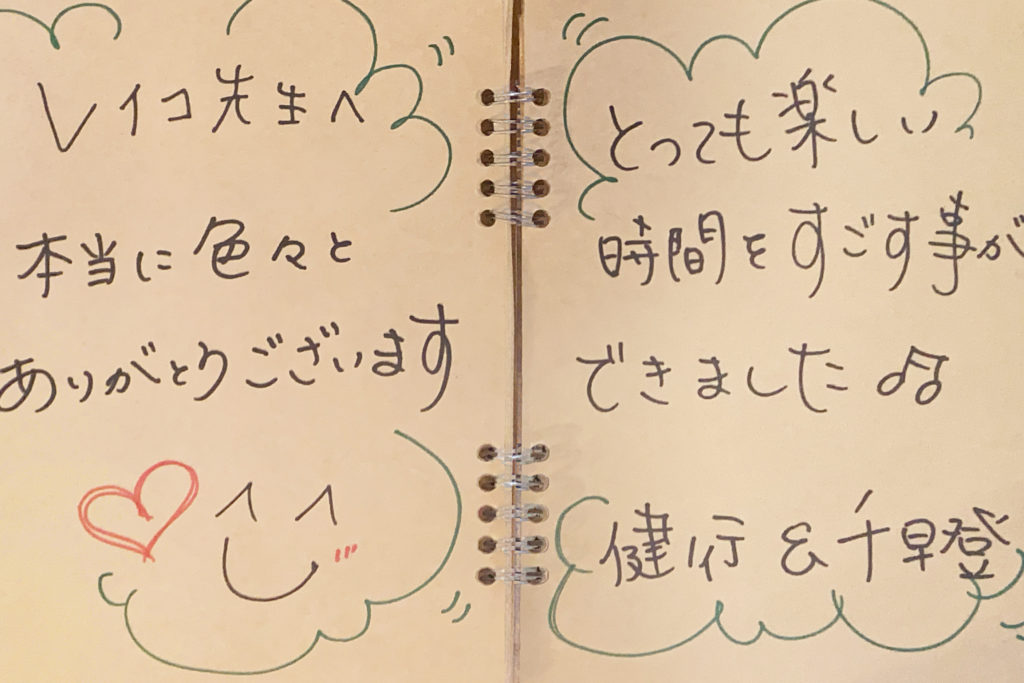 レイコ先生へ
本当に色々と
ありがとうございます
とっても楽しい
時間をすごす事が
できました♫
健行 & 千早登